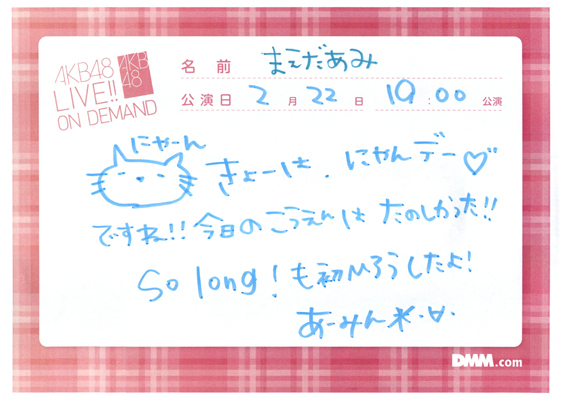 AKB48
LIVE!!
ON DEMAND
AKB
48
名前 まえだあみ
公演日 2月22日 19:00公演
にゃーん
きょーは、にゃんデー♡
ですね!!今日のこうえんは たのしかった!!
So long!も初ひろうしたよ!
あーみん
DMM.com